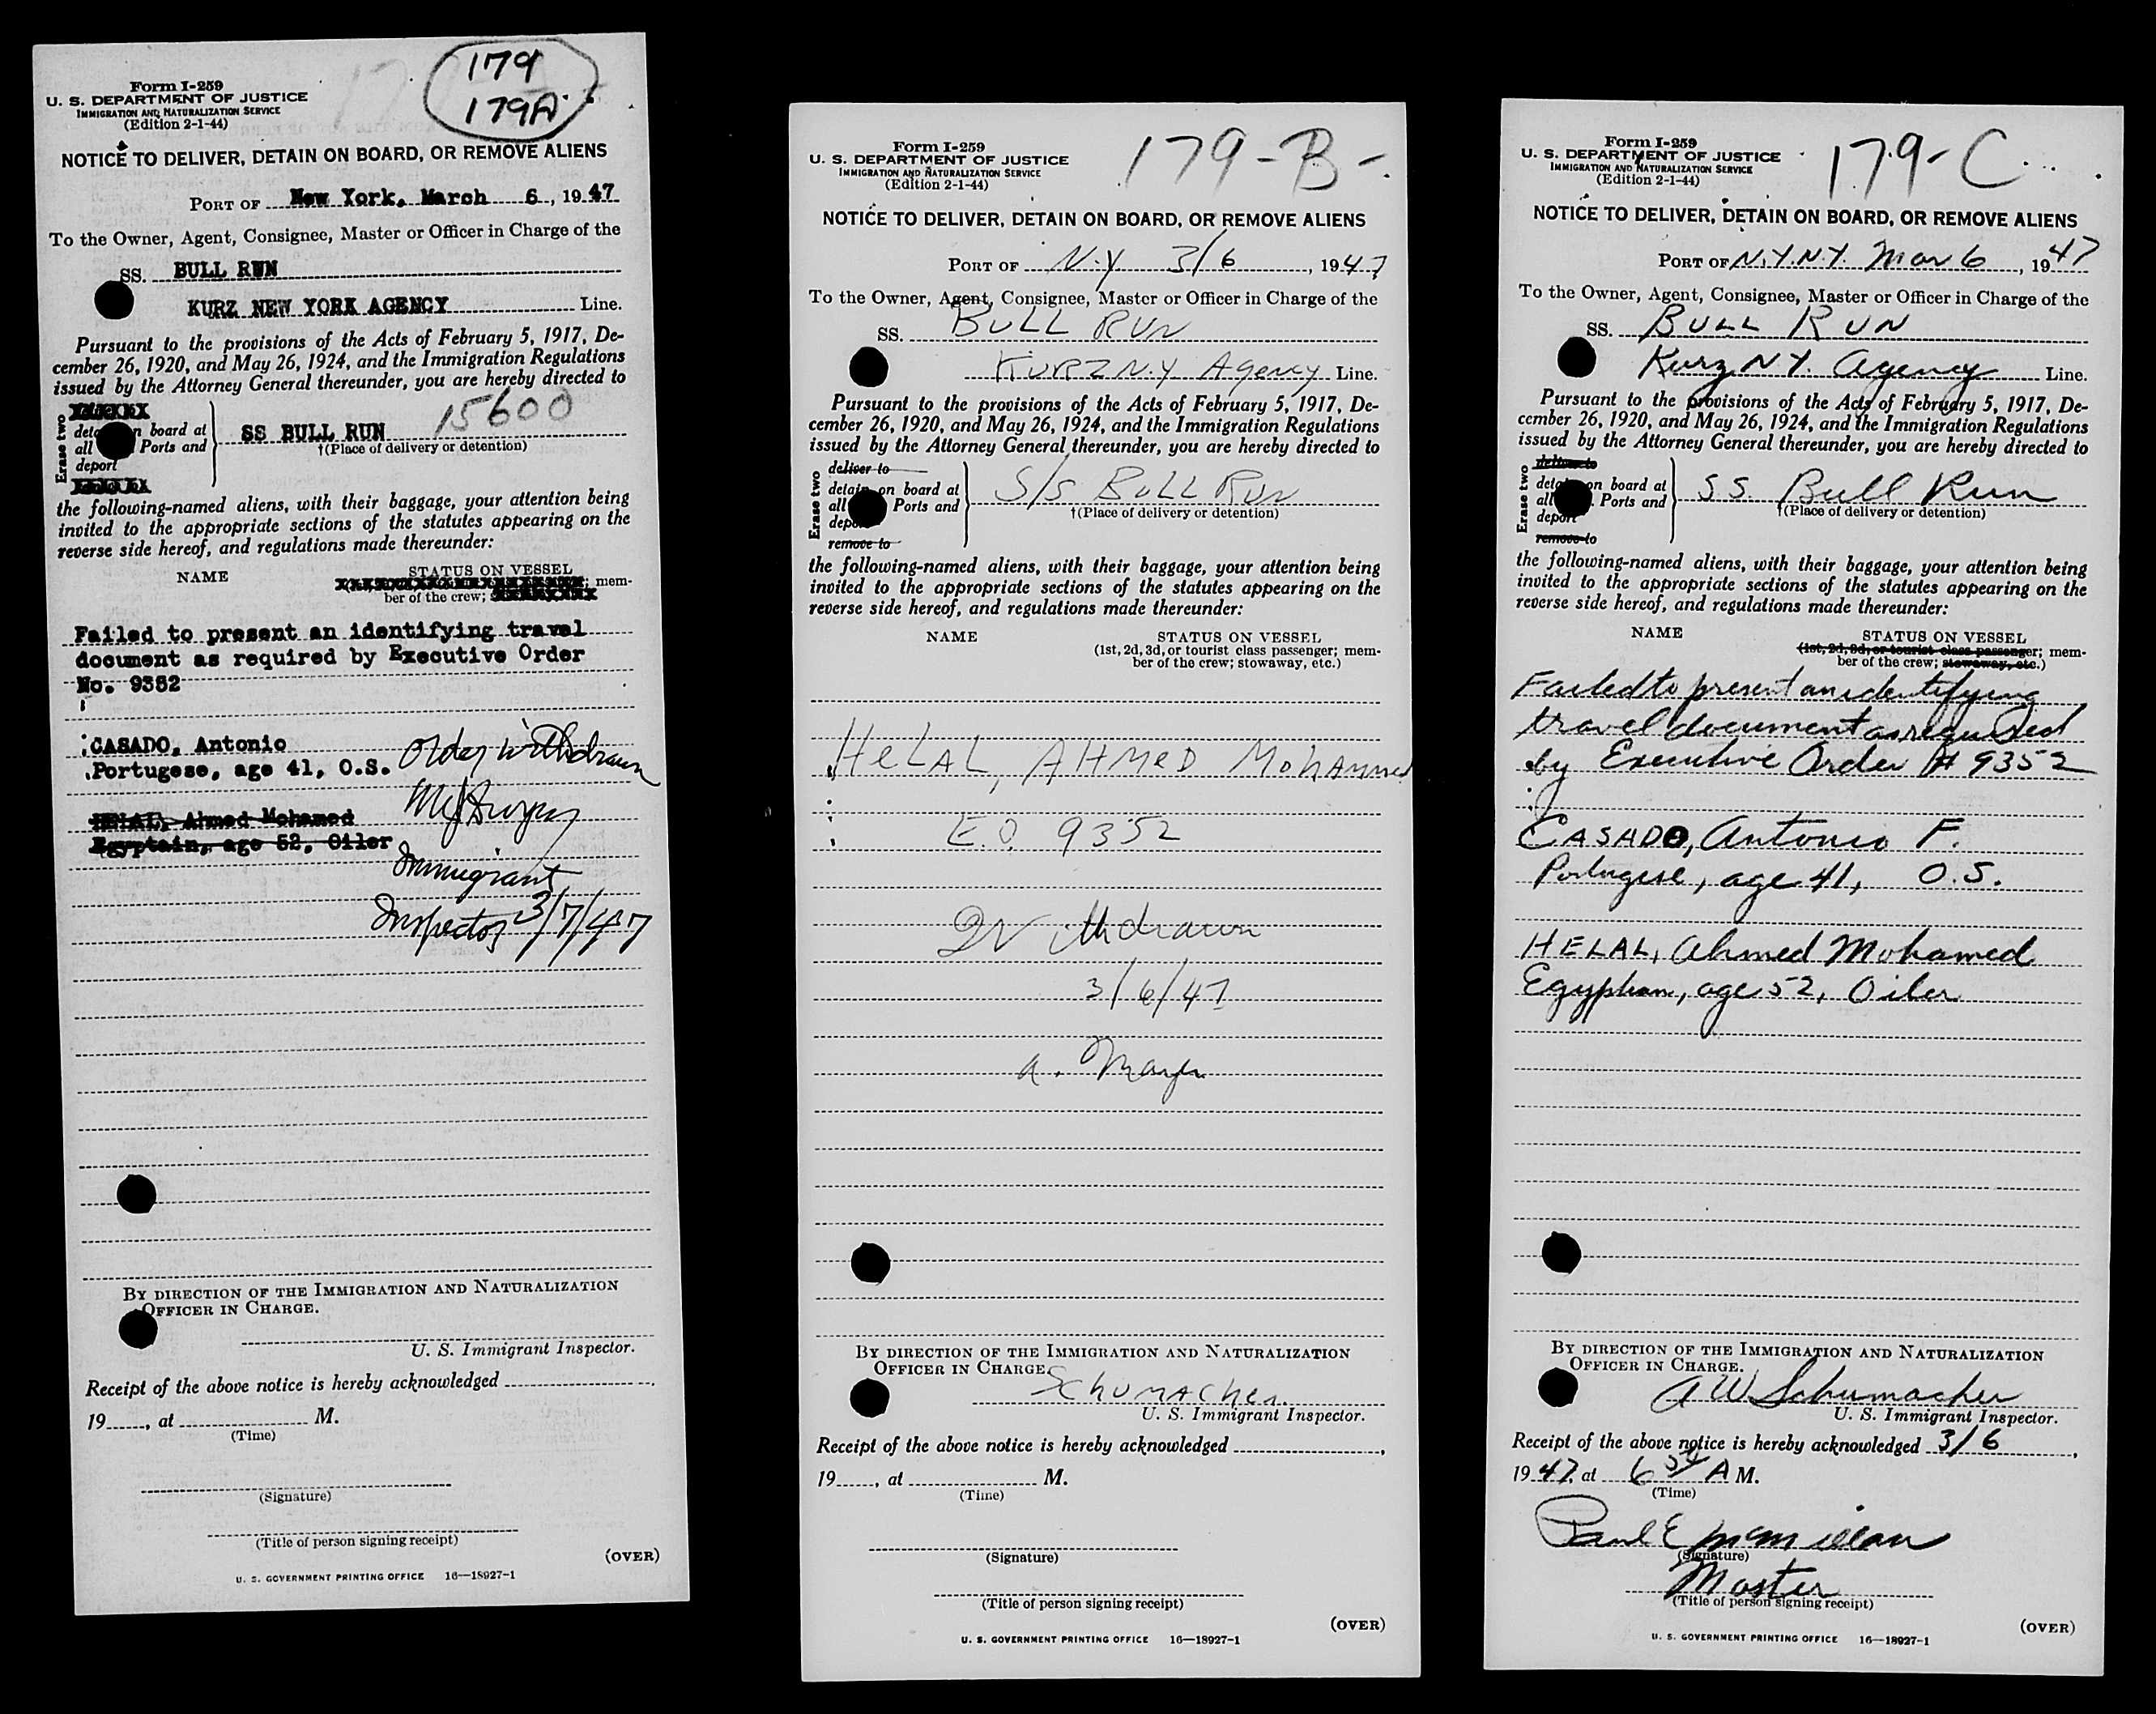 179
179A
Form I-259
U. S. DEPARTMENT OF JUSTICE
IMMIGRATION AND NATURALIZATION SERVICE
(Edition 2-1-44)
NOTICE TO DELIVER, DETAIN ON BOARD, OR REMOVE ALIENS
PORT OF New York, March 6, 1947
To the Owner, Agent, Consignee, Master or Officer in Charge of the
SS. BULL RUN
KURZ NEW YORK AGENCY Line.
Pursuant to the provisions of the Acts of February 5, 1917, De-
cember 26, 1920, and May 26, 1924, and the Immigration Regulations
issued by the Attorney General thereunder, you are hereby directed to
15600
Erase two
on board at
all Ports and
deport
SS BULL RUN
†(Place of delivery or detention)
the following-named aliens, with their baggage, your attention being
invited to the appropriate sections of the statutes appearing on the
reverse side hereof, and regulations made thereunder:
NAME STATUS ON VESSEL
mem-
ber of the crew;
Failed to present an identifying travel
document as required by Executive Order
No. 9352
CASADO, Antonio
Portugese, age 41, O.S.
Order withdrawn
HELAL, Ahmed Mohamed
Egyptain, age 52, Oiler
Immigrant
Inspector 3/7/47
BY DIRECTION OF THE IMMIGRATION AND NATURALIZATION
OFFICER IN CHARGE.
U. S. Immigrant Inspector.
Receipt of the above notice is hereby acknowledged
19, at M.
(Time)
(Signature)
(Title of person signing receipt)
(OVER)
U. S. GOVERNMENT PRINTING OFFICE 16—18927-1
179-B-
Form I-259
U. S. DEPARTMENT OF JUSTICE
IMMIGRATION AND NATURALIZATION SERVICE
(Edition 2-1-44)
NOTICE TO DELIVER, DETAIN ON BOARD, OR REMOVE ALIENS
PORT OF N.Y 3/6, 1947
To the Owner, Agent, Consignee, Master or Officer in Charge of the
SS. BULL RUN
KURZ N.Y Agency Line.
Pursuant to the provisions of the Acts of February 5, 1917, De-
cember 26, 1920, and May 26, 1924, and the Immigration Regulations
issued by the Attorney General thereunder, you are hereby directed to
Erase two
deliver to
detain on board at
all Ports and
remove to
S/S BULL RUN
†(Place of delivery or detention)
the following-named aliens, with their baggage, your attention being
invited to the appropriate sections of the statutes appearing on the
reverse side hereof, and regulations made thereunder:
NAME STATUS ON VESSEL
(1st, 2d, 3d, or tourist class passenger; mem-
ber of the crew; stowaway, etc.)
HELAL, AHMED MOHAMMED
E.O. 9352
Withdrawn
3/6/47
BY DIRECTION OF THE IMMIGRATION AND NATURALIZATION
OFFICER IN CHARGE.
Schumacher
U. S. Immigrant Inspector.
Receipt of the above notice is hereby acknowledged
19, at M.
(Time)
(Signature)
(Title of person signing receipt)
(OVER)
U. S. GOVERNMENT PRINTING OFFICE 16—18927-1
179-C
Form I-259
U. S. DEPARTMENT OF JUSTICE
IMMIGRATION AND NATURALIZATION SERVICE
(Edition 2-1-44)
NOTICE TO DELIVER, DETAIN ON BOARD, OR REMOVE ALIENS
PORT OF N.Y.N.Y. Mar 6, 1947
To the Owner, Agent, Consignee, Master or Officer in Charge of the
SS. BULL RUN
Kurz N.Y. Agency Line.
Pursuant to the provisions of the Acts of February 5, 1917, De-
cember 26, 1920, and May 26, 1924, and the Immigration Regulations
issued by the Attorney General thereunder, you are hereby directed to
Erase two
deliver to
on board at
all Ports and
deport
remove to
SS. Bull Run
†(Place of delivery or detention)
the following-named aliens, with their baggage, your attention being
invited to the appropriate sections of the statutes appearing on the
reverse side hereof, and regulations made thereunder:
NAME STATUS ON VESSEL
(1st, 2d, 3d, or tourist class passenger; mem-
ber of the crew; stowaway, etc.)
Failed to present an identifying
travel document as required
by Executive Order # 9352
CASADO, Antonio F.
Portugese, age 41, O.S.
HELAL, Ahmed Mohamed
Egyptian, age 52, Oiler
BY DIRECTION OF THE IMMIGRATION AND NATURALIZATION
OFFICER IN CHARGE.
A W Schumacher
U. S. Immigrant Inspector.
Receipt of the above notice is hereby acknowledged 3/6,
1947, at 6 A M.
(Time)
Paul E McMillan
(Signature)
Master
(Title of person signing receipt)
(OVER)
U. S. GOVERNMENT PRINTING OFFICE 16—18927-1